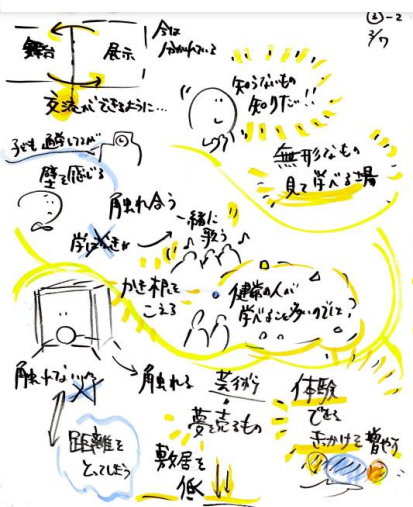 ③-2
3/7
舞台
展示
今は
分かれていて
交流ができるように…
知らないもの
知りたい!!
子ども
壁を感じる
無形なもの
見て学べる場
触れ合う
一緒に
歌う
かき根を
こえる
健常の人が
学べること多いのでは?
触れてない
触れる
芸術が
夢を売るもの
体験
できる
きっかけを増やす
距離を
とってしまう
敷居を
低